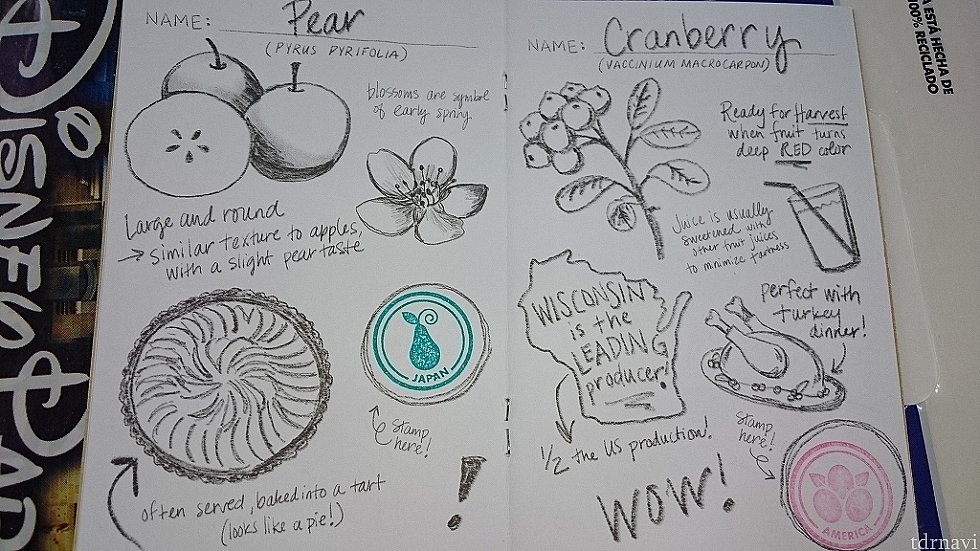 NAME: Pear
(PYRUS PYRIFOLIA)
blossoms are symbol
of early spring.
Large and round
→ similar texture to apples,
with a slight pear taste
JAPAN
stamp
here!
often served, baked into a tart
(looks like a pie!)
!
NAME: Cranberry
(VACCINIUM MACROCARPON)
Ready for Harvest
when fruit turns
deep RED color
Juice is usually
sweetened with
other fruit juices
to minimize tartness
WISCONSIN
is the
LEADING
producer!
perfect with
turkey
dinner!
1/2 the US production!
WOW!
stamp
here!
AMERICA
DISNEY PAR
A ESTÁ HECHA DE
100% RECICLADO
tdrnavi